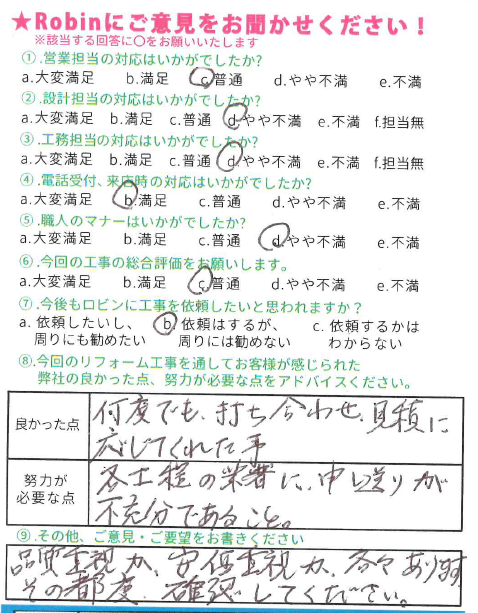 ★Robinにご意見をお聞かせください！
※該当する回答に〇をお願いいたします
①.営業担当の対応はいかがでしたか?
a.大変満足 b.満足 c.普通 d.やや不満 e.不満
②.設計担当の対応はいかがでしたか?
a.大変満足 b.満足 c.普通 d.やや不満 e.不満 f.担当無
③.工務担当の対応はいかがでしたか?
a.大変満足 b.満足 c.普通 d.やや不満 e.不満 f.担当無
④.電話受付、来店時の対応はいかがでしたか?
a.大変満足 b.満足 c.普通 d.やや不満 e.不満
⑤.職人のマナーはいかがでしたか?
a.大変満足 b.満足 c.普通 d.やや不満 e.不満
⑥.今回の工事の総合評価をお願いします。
a.大変満足 b.満足 c.普通 d.やや不満 e.不満
⑦.今後もロビンに工事を依頼したいと思われますか？
a. 依頼したいし、 b. 依頼はするが、 c. 依頼するかは
周りにも勧めたい 周りには勧めない わからない
⑧.今回のリフォーム工事を通してお客様が感じられた
弊社の良かった点、努力が必要な点をアドバイスください。
良かった点
何度でも、打ち合わせ、見積に
応じてくれた事
努力が
必要な点
各工程の業者に、申し送りが
不充分であること。
⑨.その他、ご意見・ご要望をお書きください
品質重視か、安価重視か、各々あります
その都度、確認してください。